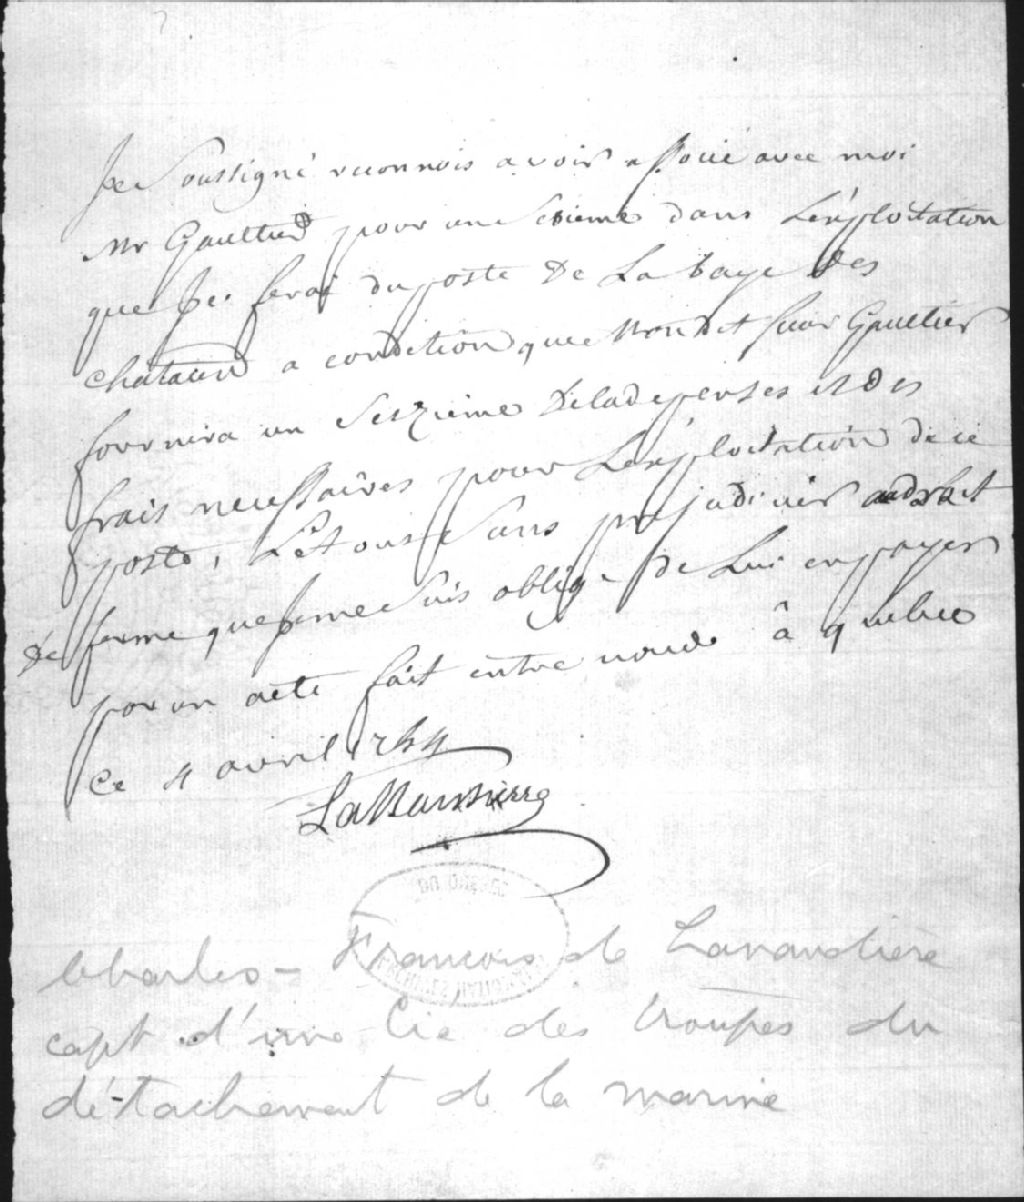 Je Soussigné reconnois avoir associé avec moi
Mr Gaultier pour un Sesieme dans L'exploitation
que Je ferai du poste De La baye Des
chataux a condition que mondit sieur Gaultier
fournira un Seszieme De la depenses et Des
frais necessaires pour L'exploitation de ce
poste, Le tout Sans prejudicier audroit
de ferme que je me Suis obligé De Lui en payer
par un acte fait entre nous à quebec
Ce 4 avril 1744
LaNaudiere
Charles-Francois de Lanaudière
capt d'une Cie des troupes du
détachement de la marine